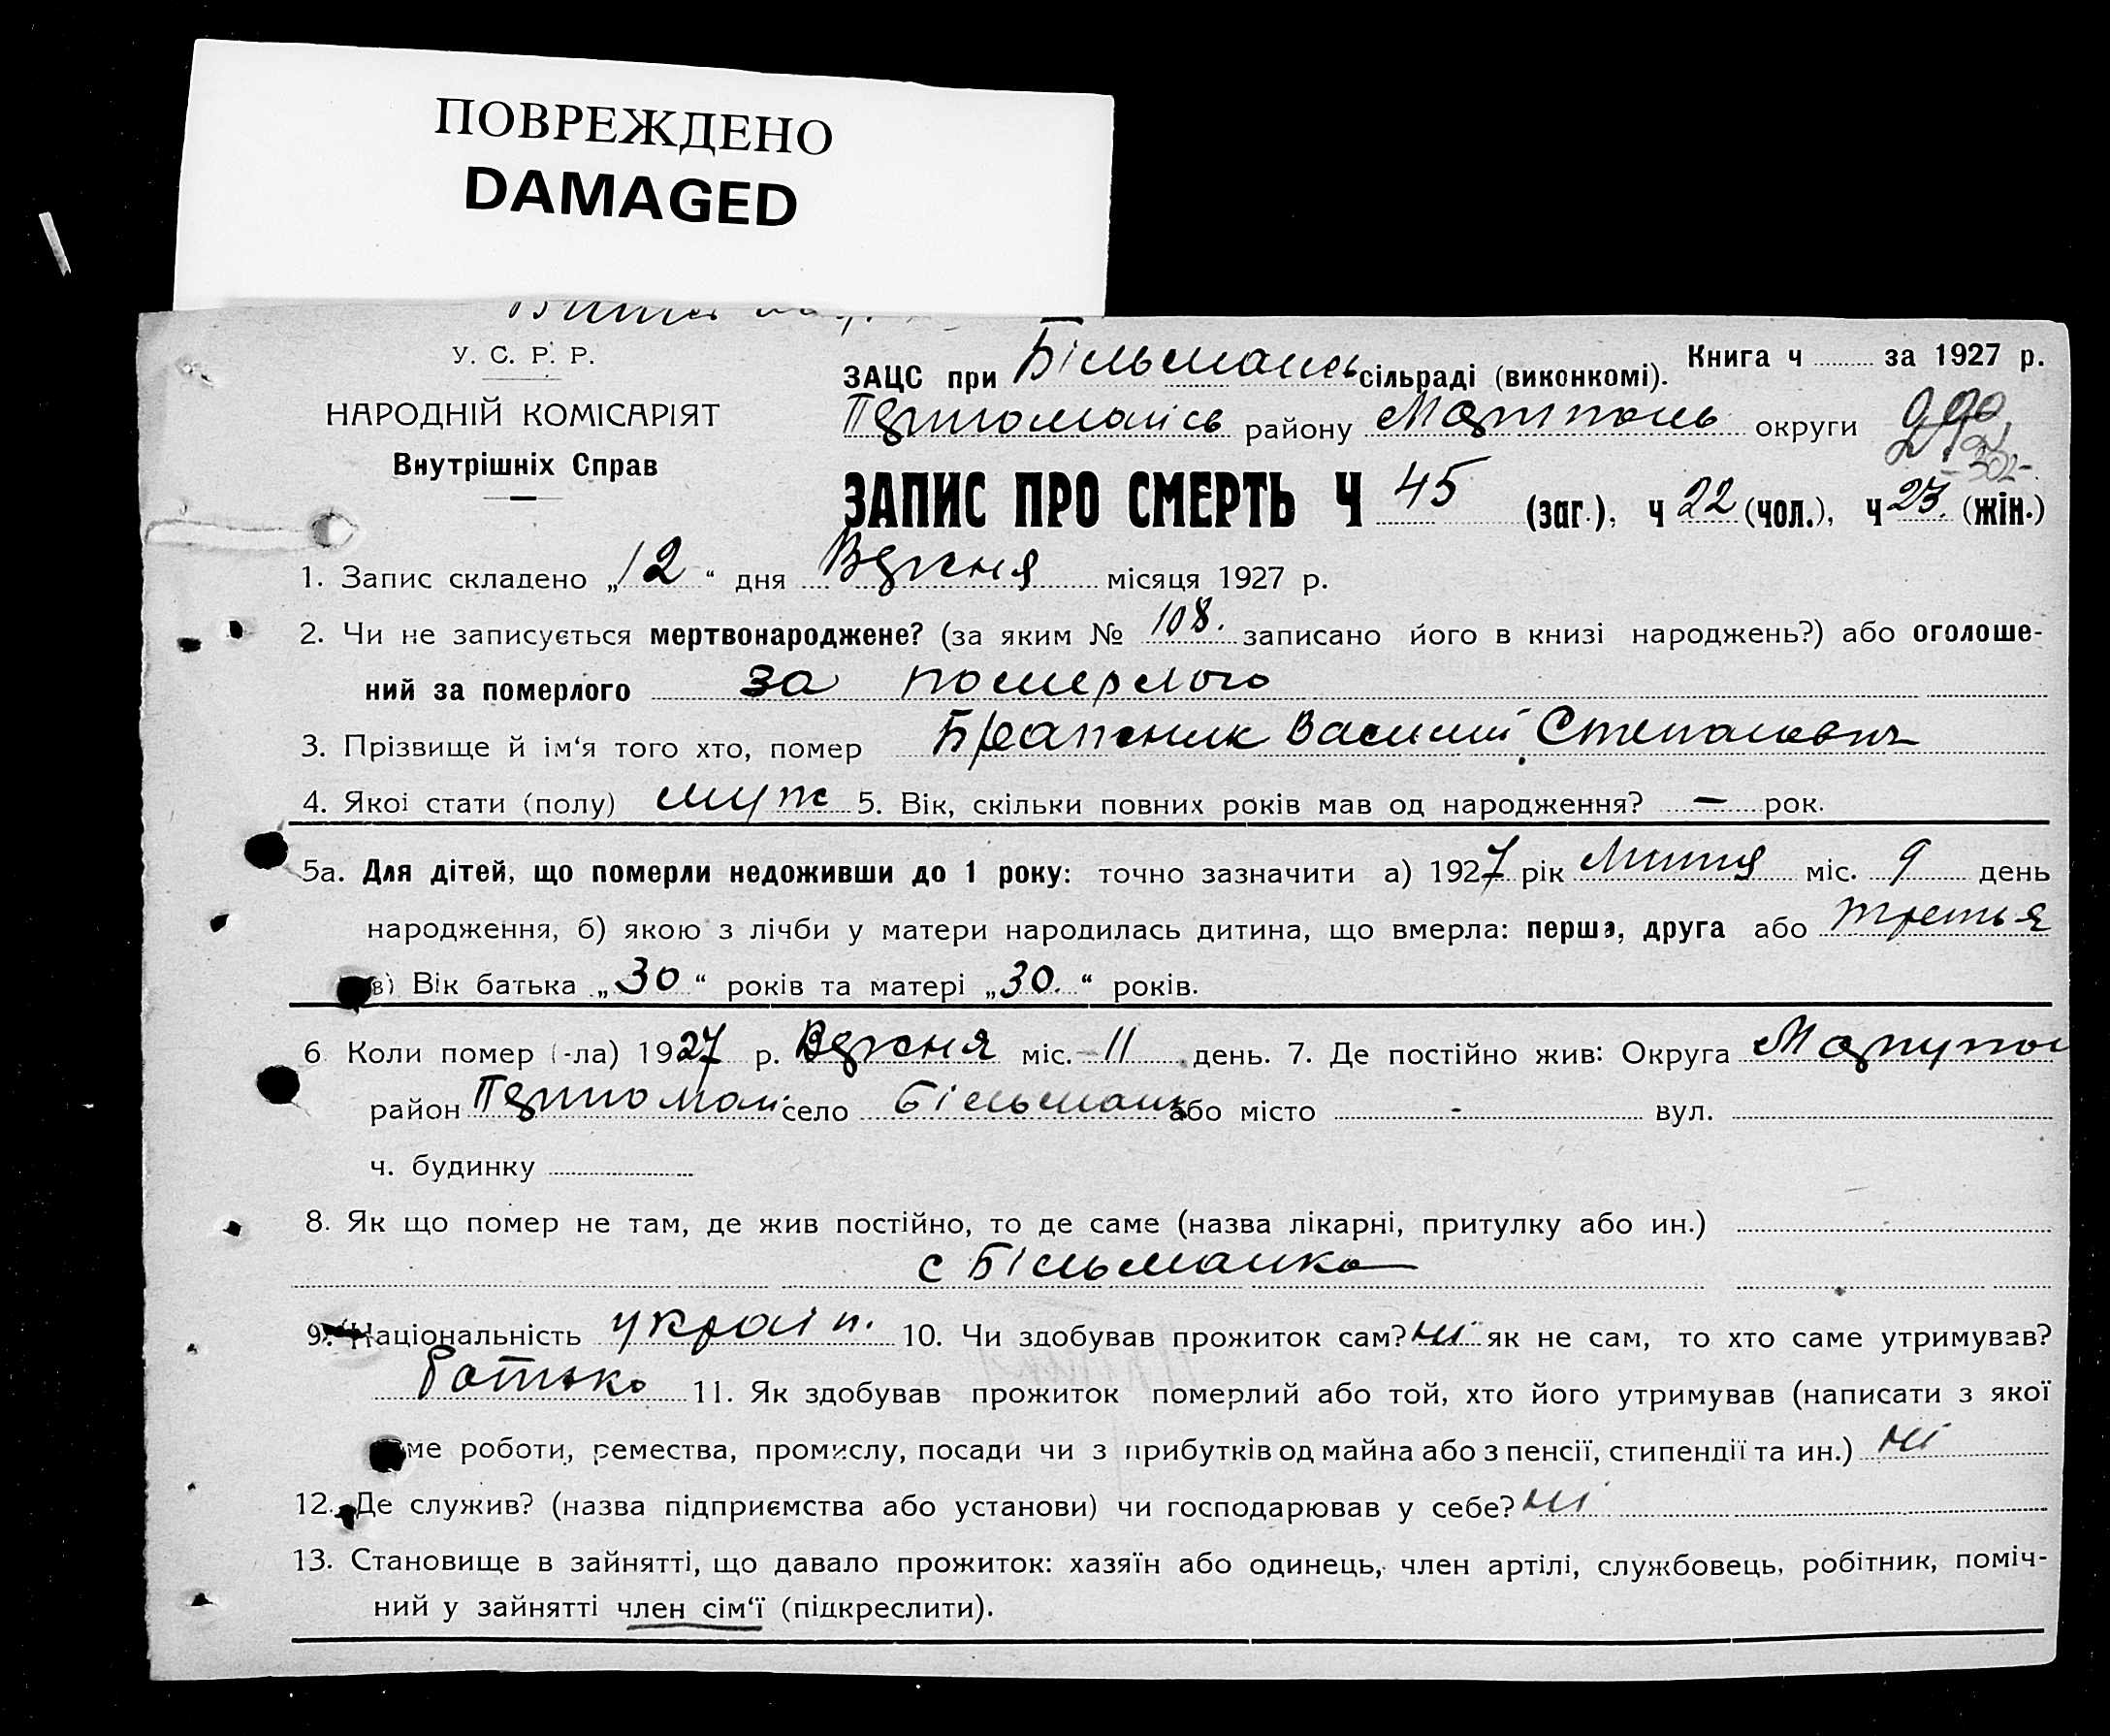 ПОВРЕЖДЕНО
DAMAGED
У. С. Р. Р.
НАРОДНІЙ КОМІСАРІЯТ
Внутрішніх Справ
Книга ч за 1927 р.
ЗАЦС при Більмансь сільраді (виконкомі).
району округи
ЗАПИС ПРО СМЕРТЬ Ч 45 (заг.), ч 22 (чол.), ч 23. (жін.)
1. Запис складено „12“ дня Вересня місяця 1927 р.
2. Чи не записується мертвонароджене? (за яким № 108. записано його в книзі народжень?) або оголоше-
ний за померлого за померлого
3. Прізвище й ім‘я того хто, помер Василий Степанович
4. Якої стати (полу) муж 5. Вік, скільки повних років мав од народження? — рок.
5а. Для дітей, що померли недоживши до 1 року: точно зазначити а) 1927 рік міс. 9 день
народження, б) якою з лічби у матери народилась дитина, що вмерла: перша, друга або третья
в) Вік батька „30“ років та матері „30.“ років.
6 Коли помер (-ла) 1927 р. Вересня міс. 11 день. 7. Де постійно жив: Округа Маріупол
район село Більманк або місто - вул.
ч. будинку
8. Як що помер не там, де жив постійно, то де саме (назва лікарні, притулку або ин.)
с Більманка
9. Національність україн. 10. Чи здобував прожиток сам? ні як не сам, то хто саме утримував?
Батько 11. Як здобував прожиток померлий або той, хто його утримував (написати з якої
ме роботи, ремества, промислу, посади чи з прибутків од майна або з пенсії, стипендії та ин.) ні
12. Де служив? (назва підприємства або установи) чи господарював у себе? ні
13. Становище в зайнятті, що давало прожиток: хазяїн або одинець, член артілі, службовець, робітник, поміч-
ний у зайнятті член сім‘ї (підкреслити).